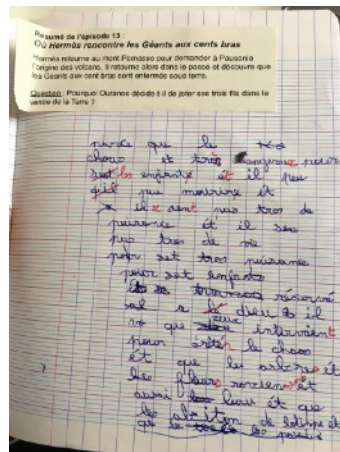 Résumé de l'épisode 13 :
Où Hermès rencontre les Géants aux cents bras
Hermès retourne au mont Parnasse pour demander à Pausania
l'origine des volcans. Il retourne alors dans le passé et découvre que
les Géants aux cent bras sont enfermés sous terre.
Question : Pourquoi Ouranos décide t il de jeter ses trois fils dans le
ventre de la Terre ?
parce que le
chaos et tros dangereux pour
set les enfants et il peu
qil peu mourire et
il x aent pas tros de
puirance et il seo
pas tros de vie
pour set tros puirance
pour set enfants
réservé
sol a le dieu is il
que jeux intervient
pour arèter le chaos
et que les arbres et
les fleurs revient et
aussi leau et que
les abitton de lolimpe et